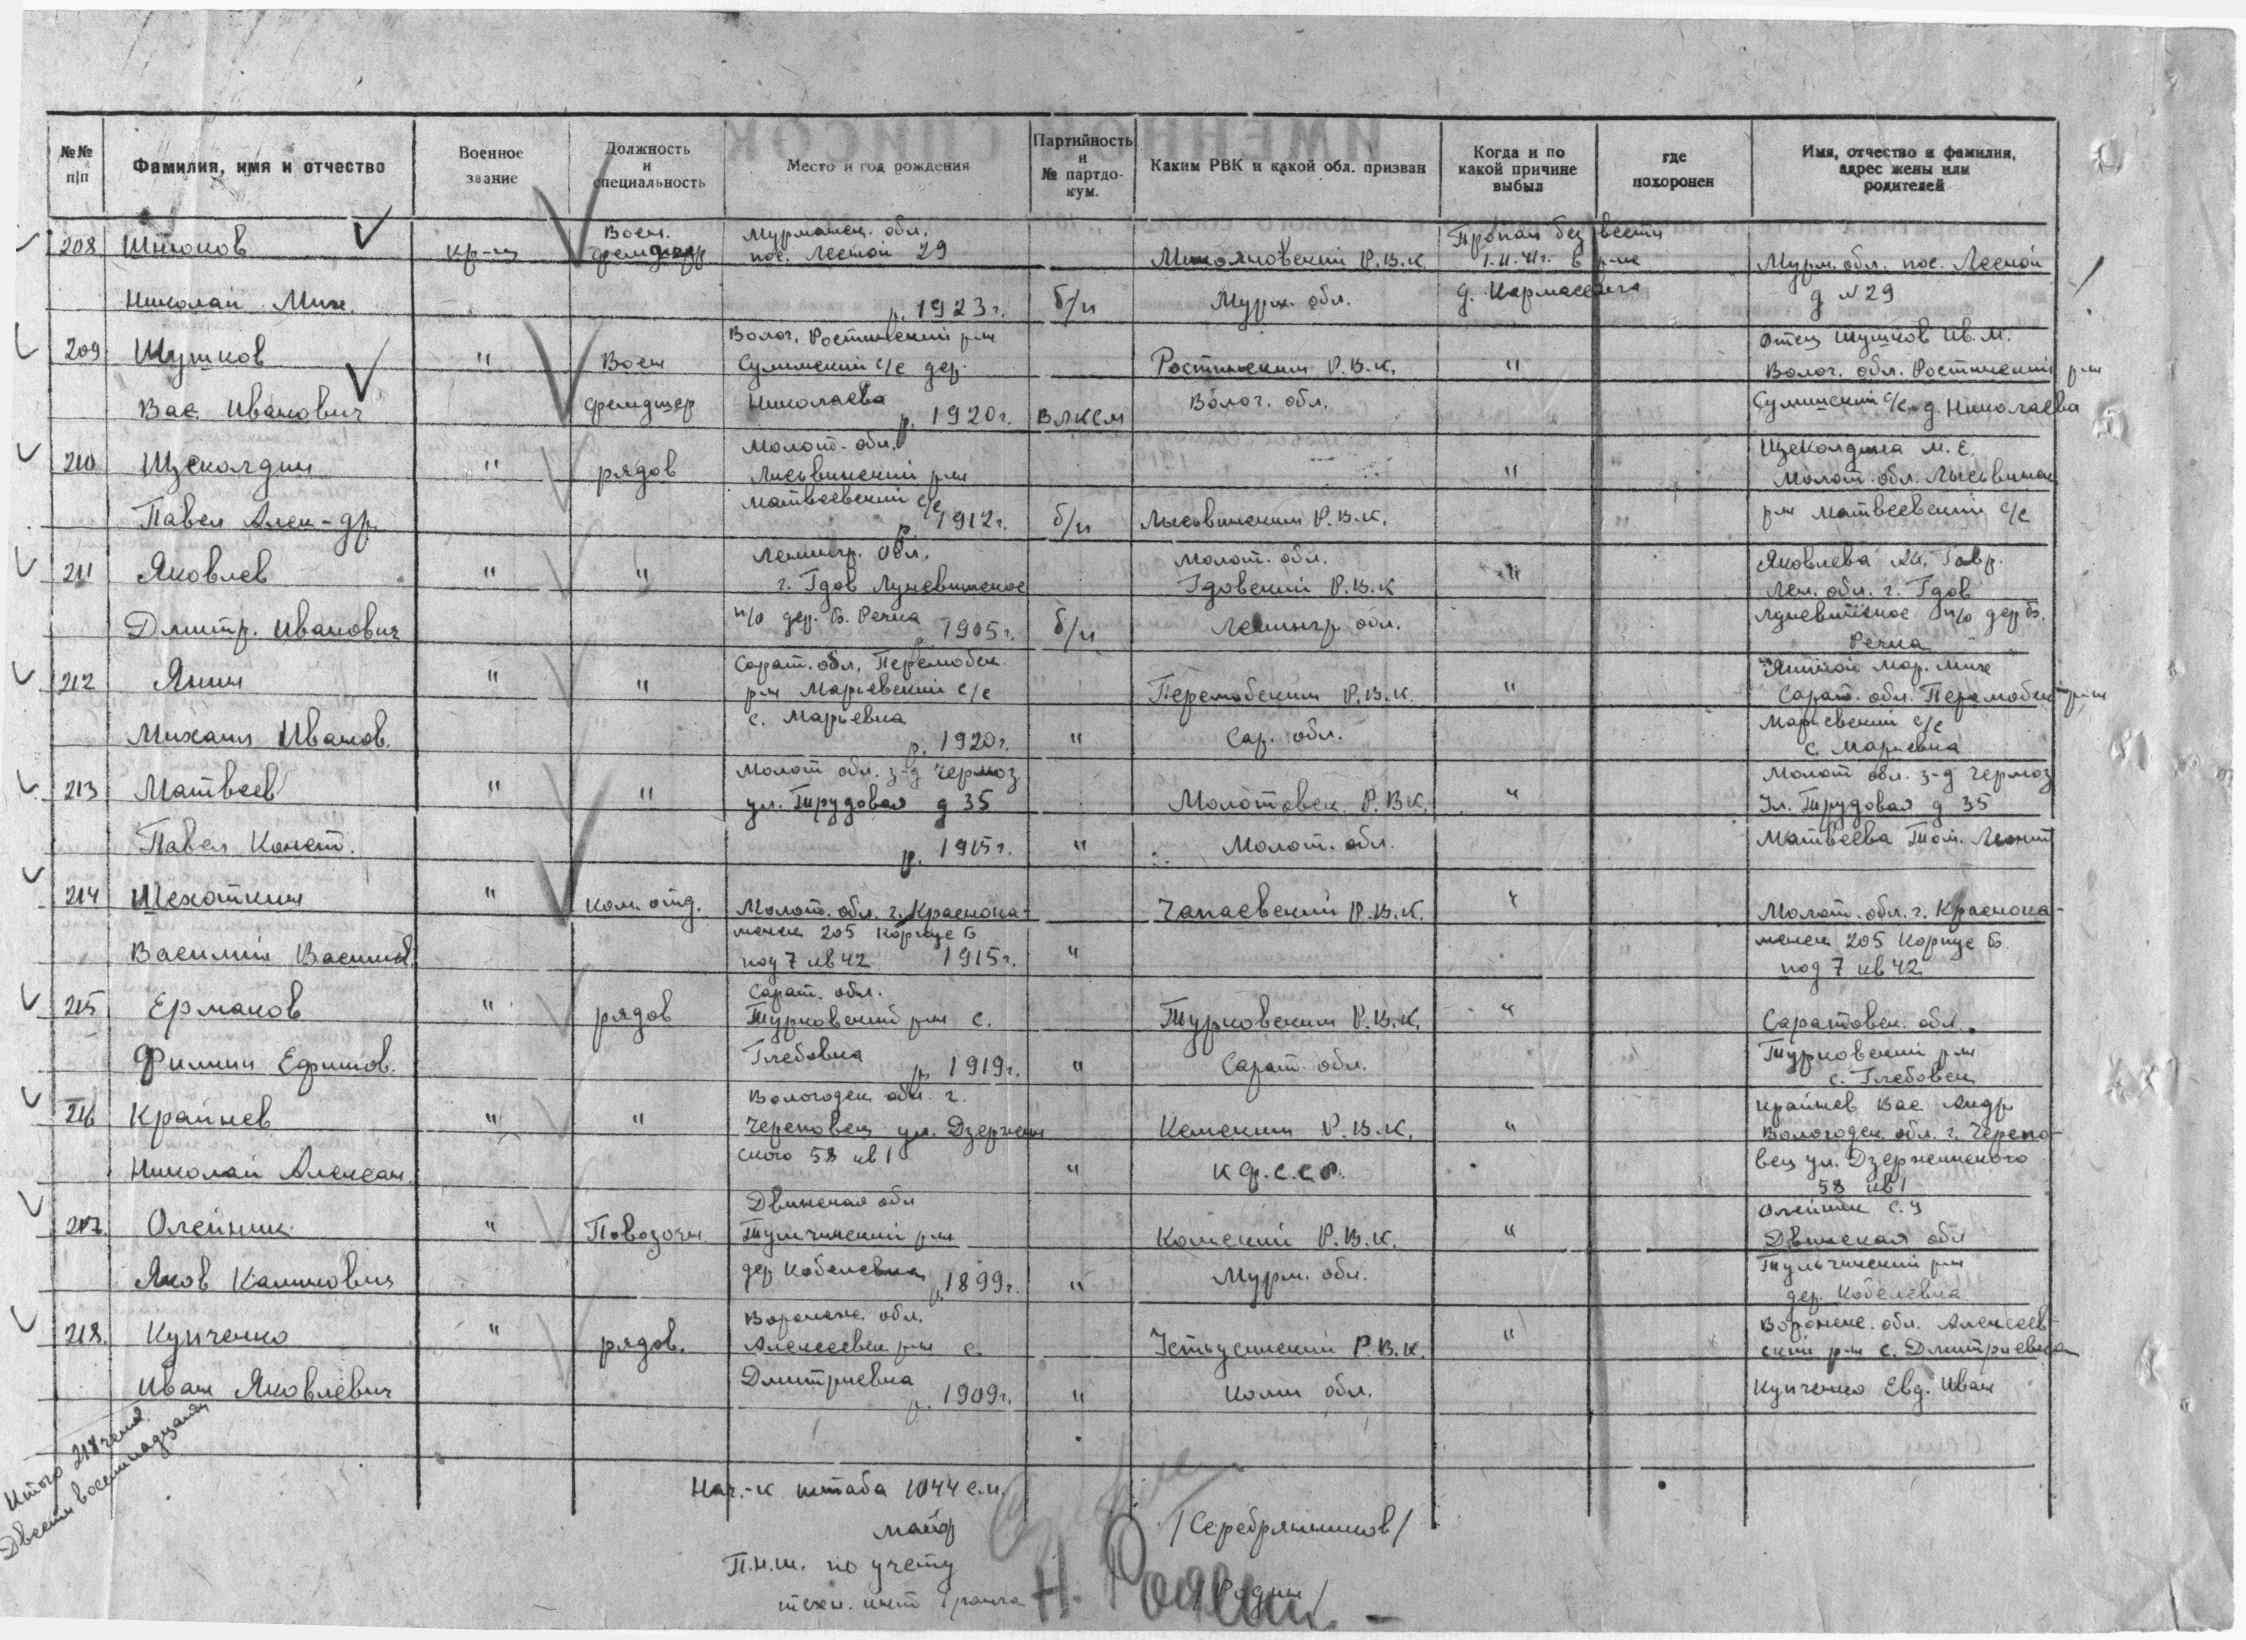 №№ п|п
Фамилия, имя и отчество
Военное звание
Должность и специальность
Место и год рождения
Партийность и № партдокум.
Каким РВК и какой обл. призван
Когда и по какой причине выбыл
где похоронен
Имя, отчество и фамилия, адрес жены или родителей
208 Штоков
Николай Мих.
кр-ц
Воен. фельдшер
Мурманск. обл.
пос. Лесной 29
р. 1923г.
б/п
Р.В.К.
Мурм. обл.
Пропал без вести
1.11.41г. в р-не
д.
Мурм. обл. пос. Лесной
д №29
209 Шушков
Вас Иванович
"
Воен
фельдшер
Волог. Ростинский р-н
с/с дер.
Николаева
р. 1920г.
ВЛКСМ
Ростинским Р.В.К.
Волог. обл.
"
Отец Шушков Ив. М.
Волог. обл. Ростинский р-н
с/с д. Николаева
210 Щеколдин
Павел Алек-др.
"
рядов
Молот. обл.
Лысьвинский р-н
Матвеевский с/с
р. 1912г.
б/п
Лысьвинским Р.В.К.
Молот. обл.
"
Щеколдина М. Е.
Молот. обл. Лысьвинск
р-н Матвеевский с/с
211 Яковлев
Дмитр. Иванович
"
"
Ленингр. обл.
г. Гдов
п/о дер. Б. Речка
р. 1905г.
б/п
Гдовский Р.В.К
Ленингр обл.
"
Яковлева Ак. Гавр.
Лен. обл. г. Гдов
п/о дер Б.
Речка
212 Янин
Михаил Иванов.
"
"
Сарат. обл.
р-н Марьевский с/с
с. Марьевка
р. 1920г.
"
Р.В.К.
Сар. обл.
"
Мар. Мих
Сарат. обл. р-н
Марьевский с/с
с. Марьевка
213 Матвеев
Павел Конст.
"
"
Молот обл. з-д Чермоз
ул. Трудовая д 35
р. 1915г.
"
Молотовск. Р.ВК.
Молот. обл.
"
Молот обл. з-д Чермоз
Ул. Трудовая д 35
Матвеева
214 Шехоткин
Василий Василь.
"
ком. отд.
Молот. обл. г. Краснока-
менск 205 корпус Б
под 7 кв 42 1915г.
"
Чапаевский Р.В.К.
"
Молот. обл. г. Краснока-
менск 205 корпус Б.
под 7 кв 42
215 Ермаков
Филипп Ефимов.
"
рядов
Сарат. обл.
Турковский р-н с.
Глебовка
р. 1919г.
"
Турковским Р.В.К.
Сарат. обл.
"
Саратовск. обл.
Турковский р-н
с.
216 Крайнев
Николай Алексан.
"
"
Вологодск обл. г.
Череповец ул. Дзержин
ского 58 кв 1
"
Кемским Р.В.К.
К Ф.С.С.Р.
"
Крайнев Вас Андр
Вологодск. обл. г. Черепо-
вец ул. Дзержинского
58 кв 1
217. Олейник
Яков Калинович
"
Повозочн.
Двинская обл
Тульчинский р-н
дер Кобелевка
р. 1899г.
"
Р.В.К.
Мурм. обл.
"
Олейник
Двинская обл
Тульчинский р-н
дер. Кобелевка
218. Купченко
Иван Яковлевич
"
рядов.
Воронеж. обл.
Алексеевск р-н с.
Дмитриевка
р. 1909г.
"
Р.В.К.
Коми обл.
"
Воронеж. обл. Алексеев-
ский р-н с. Дмитриевка
Купченко Евд. Иван
Итого 218 чел.
Двести восемнадцать
Нач.-к штаба 1044 с.п.
майор
/Серебрянников/
П.Н.Ш. по учету
техн. инт. 1 ранга